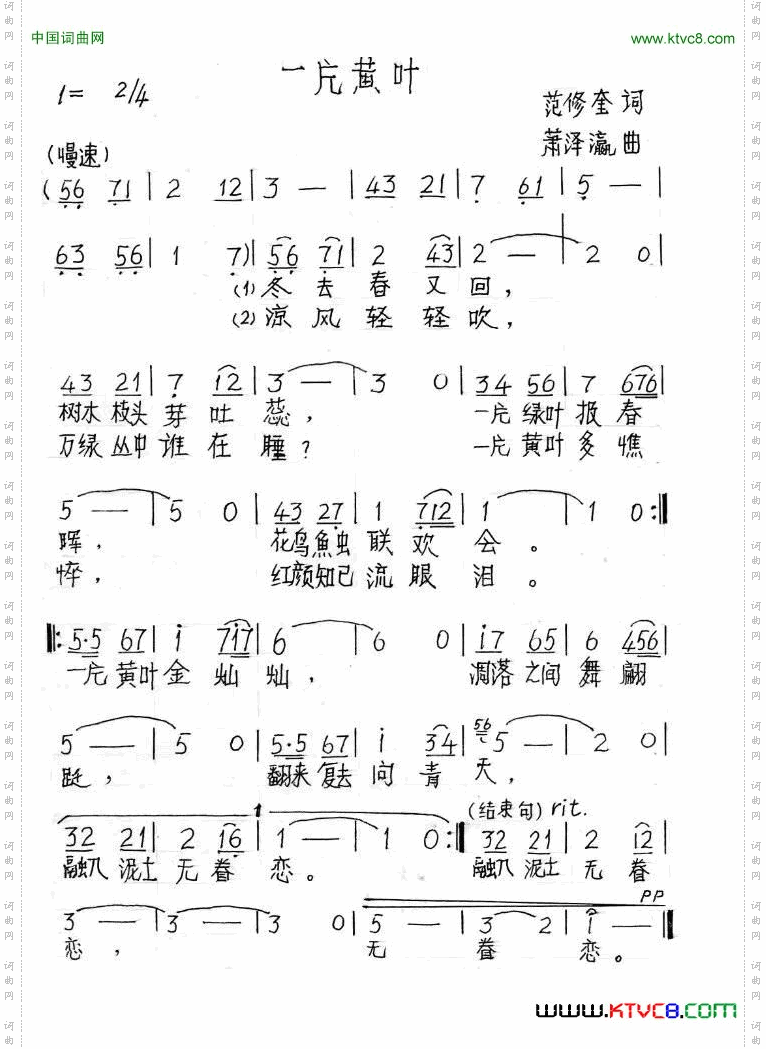 中国词曲网 www.ktvc8.com
一片黄叶
1= 2/4
范修奎 词
萧泽瀛 曲
(慢速)
(56 71 | 2 12 | 3 — | 43 21 | 7 61 | 5 — |
63 56 | 1 7) | 56 71 | 2 43 | 2 — | 2 0 |
(1)冬去春又回，
(2)凉风轻轻吹，
43 21 | 7 12 | 3 — | 3 0 | 34 56 | 7 676 |
树木枝头芽吐蕊， 一片绿叶报春
万绿丛中谁在睡？ 一片黄叶多憔
5 — | 5 0 | 43 27 | 1 712 | 1 — | 1 0 :||
晖， 花鸟魚虫联欢会。
悴， 红颜知己流眼泪。
||: 5·5 67 | i 7i7 | 6 — | 6 0 | i7 65 | 6 456 |
一片黄叶金灿灿， 凋落之间舞翩
5 — | 5 0 | 5·5 67 | i 34 | 56 5 — | 2 0 |
跹， 翻来复去向青天，
1 (结束句) rit.
32 21 | 2 16 | 1 — | 1 0 :|| 32 21 | 2 12 |
融入泥土无眷恋。 融入泥土无眷
PP
3 — | 3 — | 3 0 | 5 — | 3 2 | i — ||
恋， 无眷恋。
www.KTVC8.com
词曲网